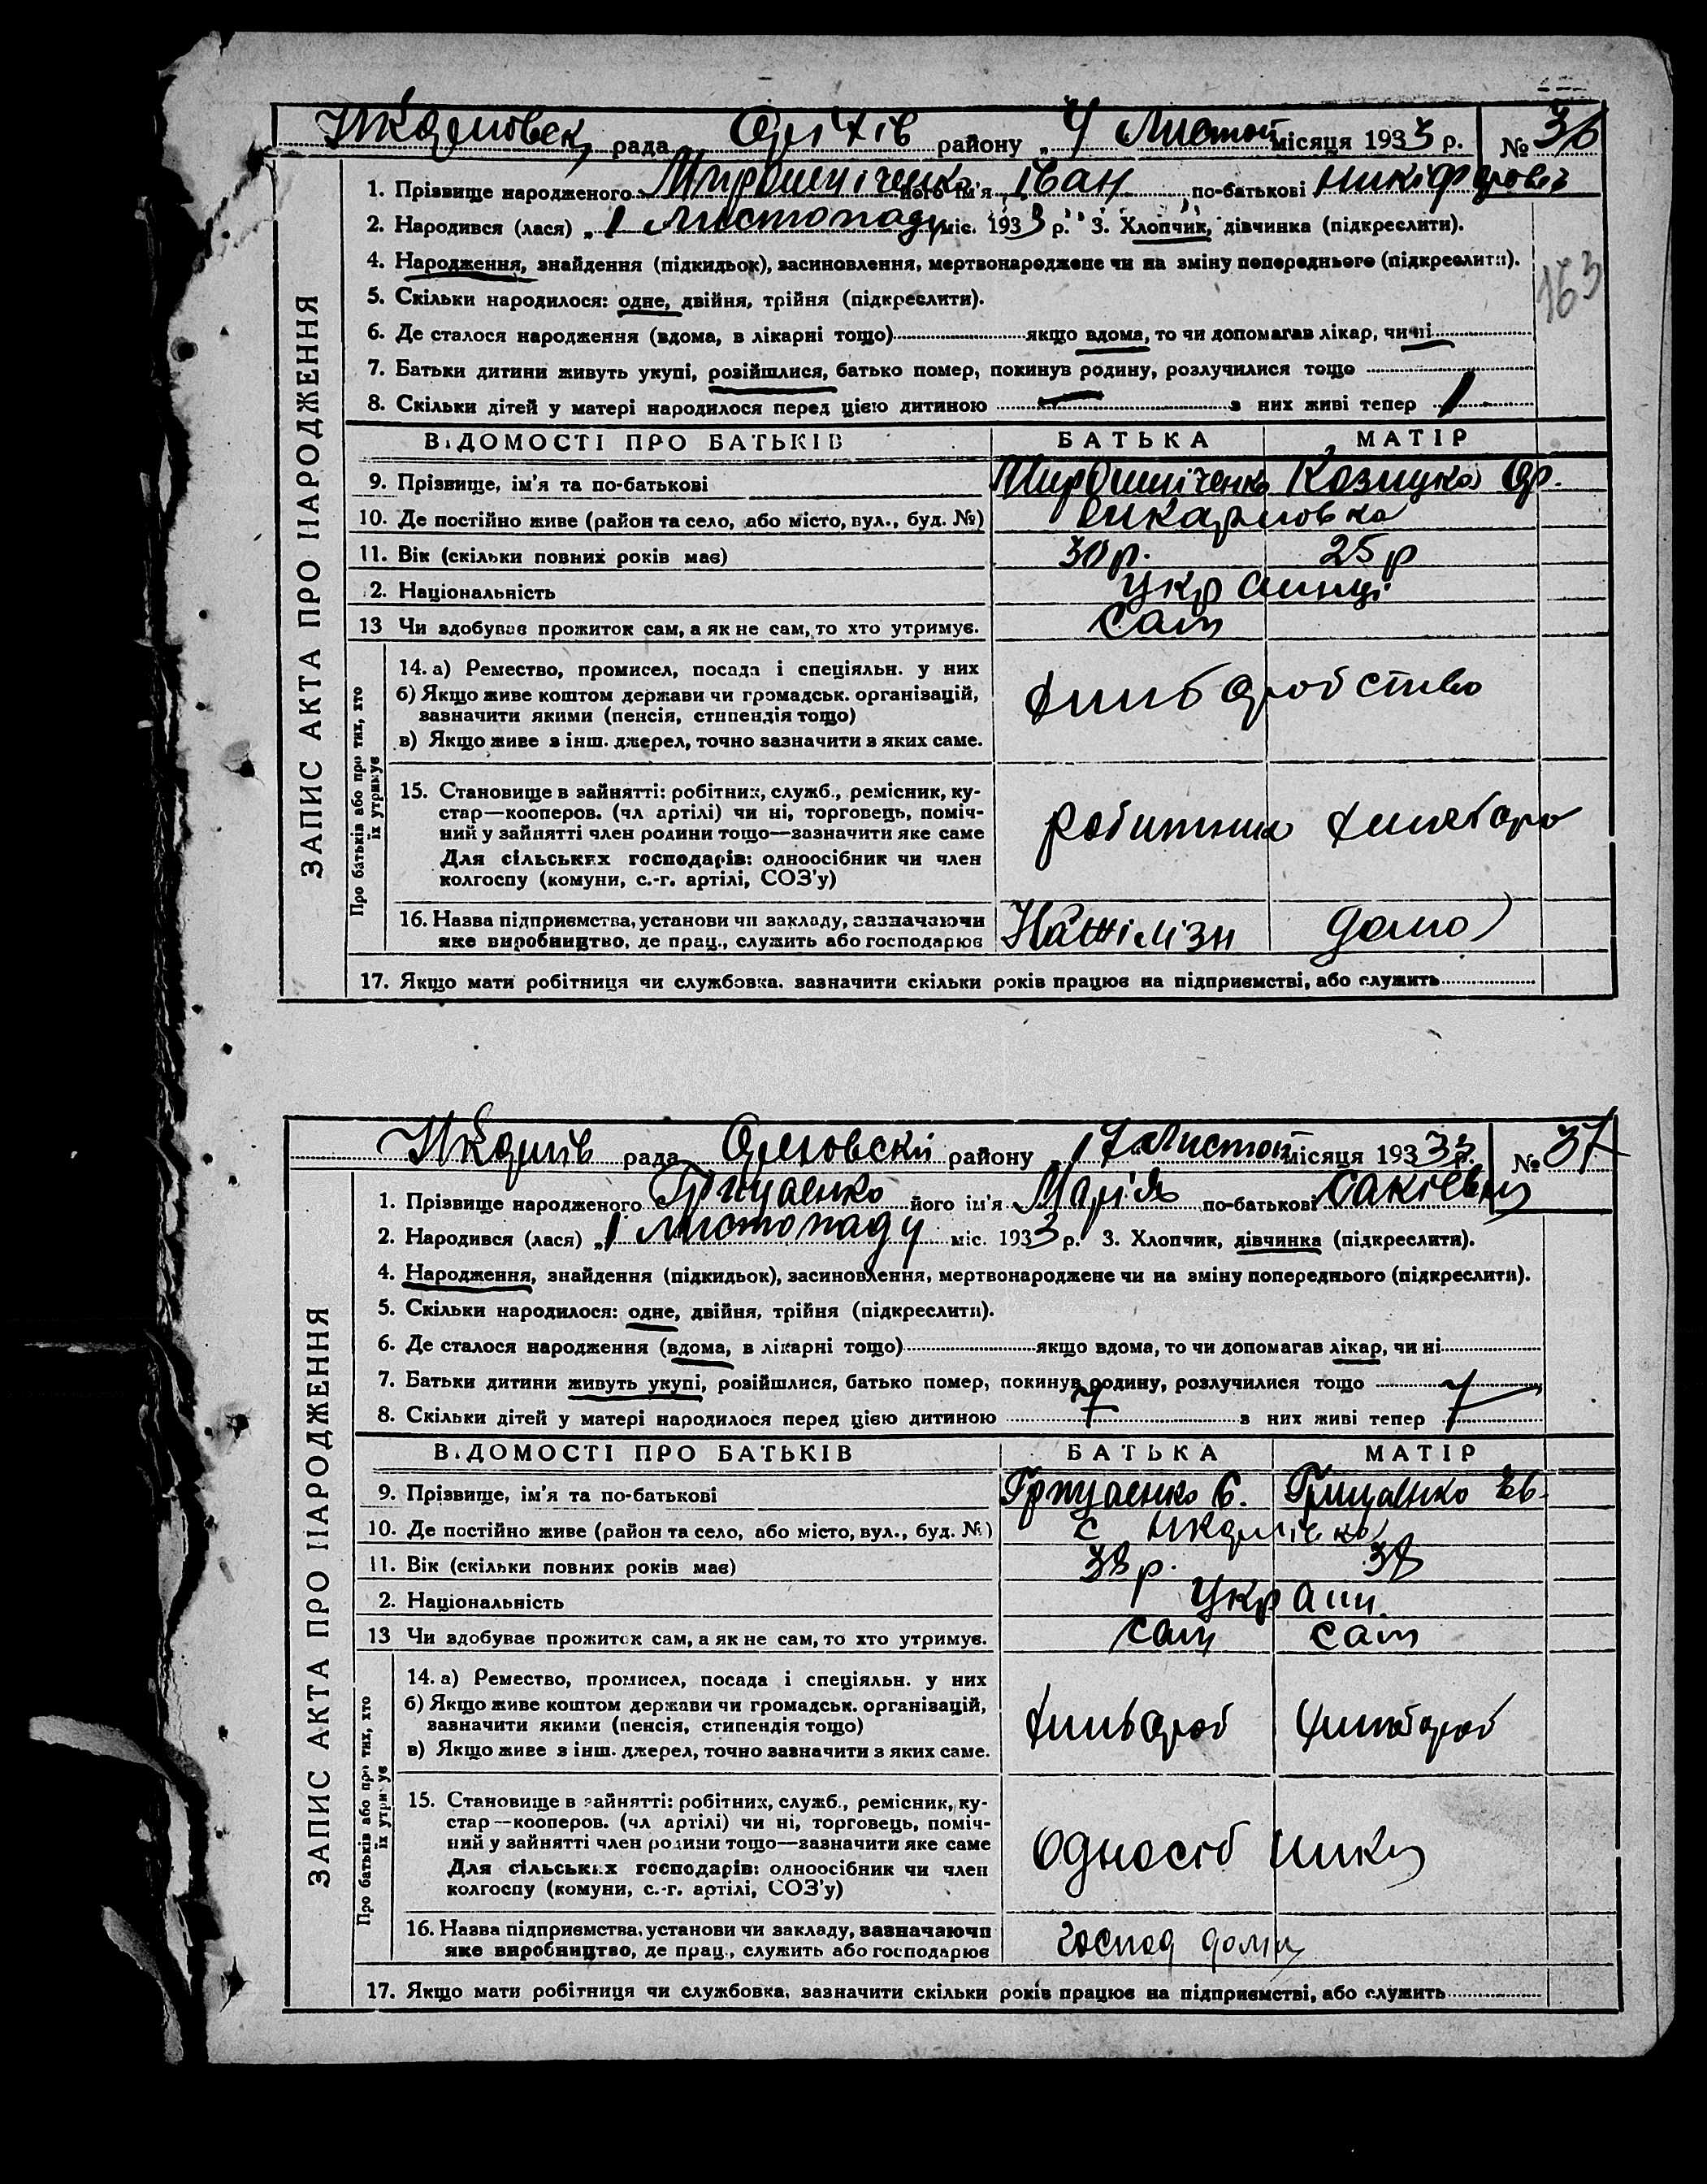 рада района „4 Листоп місяця 1933 р. № 36
1. Прізвище народженого Мирошніченко його ім'я Іван по-батькові Никіфоровіч
2. Народився (лася) „1 Листопаду міс. 1933 р. 3. Хлопчик, дівчинка (підкреслити).
4. Народження, знайдення (підкидьок), засиновлення, мертвонароджене чи на зміну попереднього (підкреслити).
163
5. Скільки народилося: одне, двійня, трійня (підкреслити).
6. Де сталося народження (вдома, в лікарні тощо) якщо вдома, то чи допомагав лікар, чи ні
7. Батьки дитини живуть укупі, розійшлися, батько помер, покинув родину, розлучилися тощо
8. Скільки дітей у матері народилося перед цією дитиною — з них живі тепер 1
ВІДОМОСТІ ПРО БАТЬКІВ БАТЬКА МАТІР
9. Прізвище, ім'я та по-батькові Мирошніченко Козицка
10. Де постійно живе (район та село, або місто, вул., буд. №)
11. Вік (скільки повних років має) 30 р. 25 р
2. Національність Украинці
13 Чи здобуває прожиток сам, а як не сам, то хто утримує. Сам
14. а) Ремество, промисел, посада і спеціяльн. у них
б) Якщо живе коштом держави чи громадськ. організацій,
зазначити якими (пенсія, стипендія тощо)
в) Якщо живе з інш. джерел, точно зазначити з яких саме.
15. Становище в зайнятті: робітник, служб., ремісник, ку-
стар—кооперов. (чл артілі) чи ні, торговець, поміч-
ний у зайнятті член родини тощо—зазначити яке саме
Для сільських господарів: одноосібник чи член
колгоспу (комуни, с.-г. артілі, СОЗ'у)
16. Назва підприємства, установи чи закладу, зазначаючи
яке виробництво, де прац., служить або господарює дома
17. Якщо мати робітниця чи службовка, зазначити скільки років працює на підприємстві, або служить
ЗАПИС АКТА ПРО НАРОДЖЕННЯ
Про батьків або про тих, хто
їх утримує
рада району 17 Листоп місяця 1933 р. № 37
1. Прізвище народженого Грицаенко його ім'я Марія по-батькові
2. Народився (лася) „1 листопаду міс. 1933 р. 3. Хлопчик, дівчинка (підкреслити).
4. Народження, знайдення (підкидьок), засиновлення, мертвонароджене чи на зміну попереднього (підкреслити).
5. Скільки народилося: одне, двійня, трійня (підкреслити).
6. Де сталося народження (вдома, в лікарні тощо) якщо вдома, то чи допомагав лікар, чи ні
7. Батьки дитини живуть укупі, розійшлися, батько помер, покинув родину, розлучилися тощо
8. Скільки дітей у матері народилося перед цією дитиною 7 з них живі тепер 7
ВІДОМОСТІ ПРО БАТЬКІВ БАТЬКА МАТІР
9. Прізвище, ім'я та по-батькові Грицаенко Грицаенко
10. Де постійно живе (район та село, або місто, вул., буд. №) с
11. Вік (скільки повних років має) 38 р. 38
2. Національність Украин.
13 Чи здобуває прожиток сам, а як не сам, то хто утримує. сам сам
14. а) Ремество, промисел, посада і спеціяльн. у них
б) Якщо живе коштом держави чи громадськ. організацій,
зазначити якими (пенсія, стипендія тощо)
в) Якщо живе з інш. джерел, точно зазначити з яких саме.
15. Становище в зайнятті: робітник, служб., ремісник, ку-
стар—кооперов. (чл артілі) чи ні, торговець, поміч-
ний у зайнятті член родини тощо—зазначити яке саме
Для сільських господарів: одноосібник чи член
колгоспу (комуни, с.-г. артілі, СОЗ'у)
16. Назва підприємства, установи чи закладу, зазначаючи
яке виробництво, де прац., служить або господарює господ дома
17. Якщо мати робітниця чи службовка, зазначити скільки років працює на підприємстві, або служить
ЗАПИС АКТА ПРО НАРОДЖЕННЯ
Про батьків або про тих, хто
їх утримує